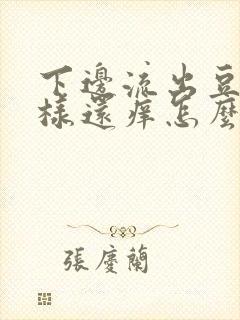 下邊流出豆
樣還痒怎麼
張慶蘭